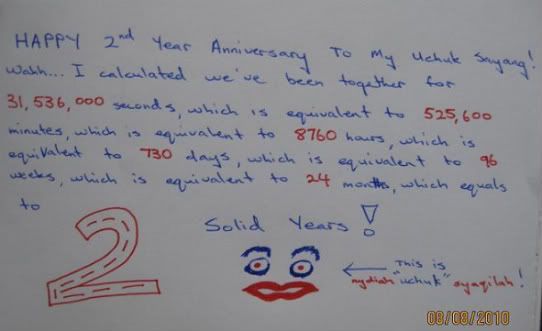 HAPPY 2nd Year Anniversary To My Uchuk Sayang!
Wahh... I calculated we've been together for
31,536,000 seconds, which is equivalent to 525,600
minutes, which is equivalent to 8760 hours, which is
equivalent to 730 days, which is equivalent to 96
weeks, which is equivalent to 24 months, which equals
to
2 Solid Years!
This is
"uchuk"
08/08/2010